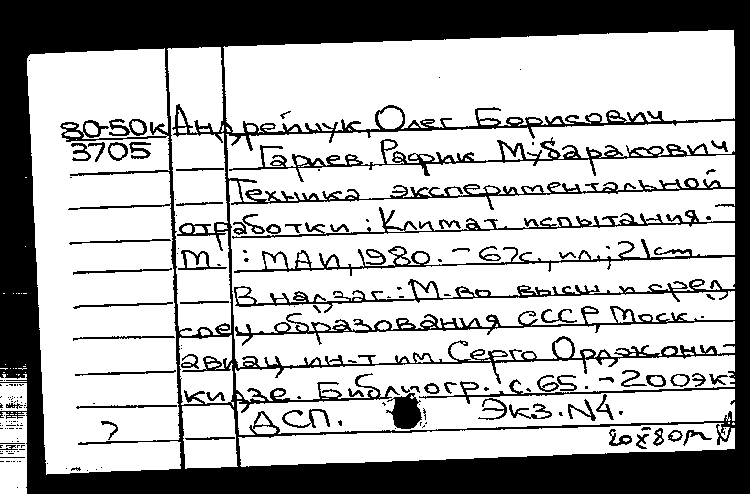 80-50к Андрейчук, Олег Борисович,
3705 Гарлев, Рафик Мубаракович.
Техника экспериментальной
отработки : Климат. испытания. -
М. : МАИ, 1980. - 67с., ил.; 21 см.
В надзаг.: М-во высш. и сред.
спец. образования СССР, Моск.
авиац. ин-т им. Серго Орджони-
кидзе. Библиогр.: с. 65. - 200 экз
ДСП. Экз. N4.